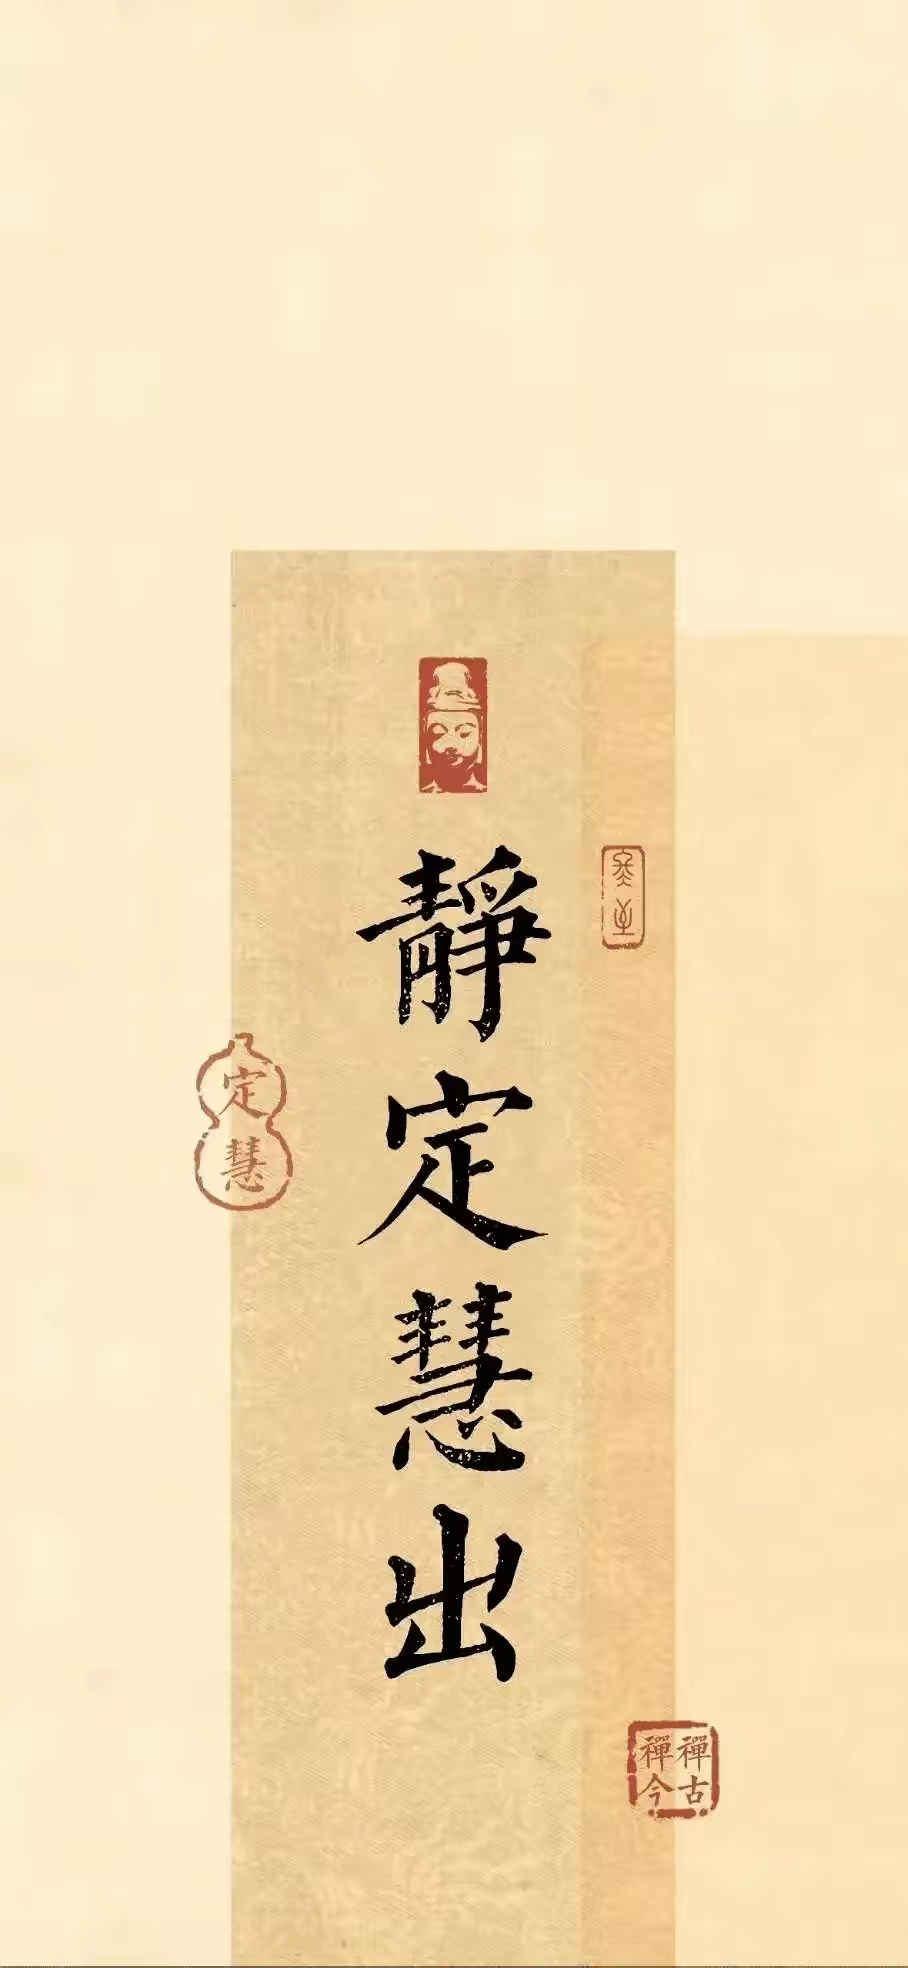 靜定慧出
定慧
禪古
禪今